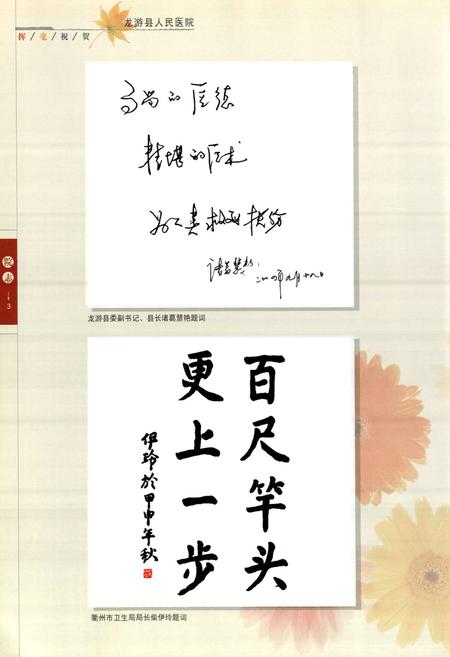 龙游县人民医院
挥/毫/祝/贺
高尚的医德
精堪的医术
诸葛慧艳
二〇〇四年九月十八日
院志
3
龙游县委副书记、县长诸葛慧艳题词
百尺竿头
更上一步
伊玲於甲申年秋
衢州市卫生局局长柴伊玲题词